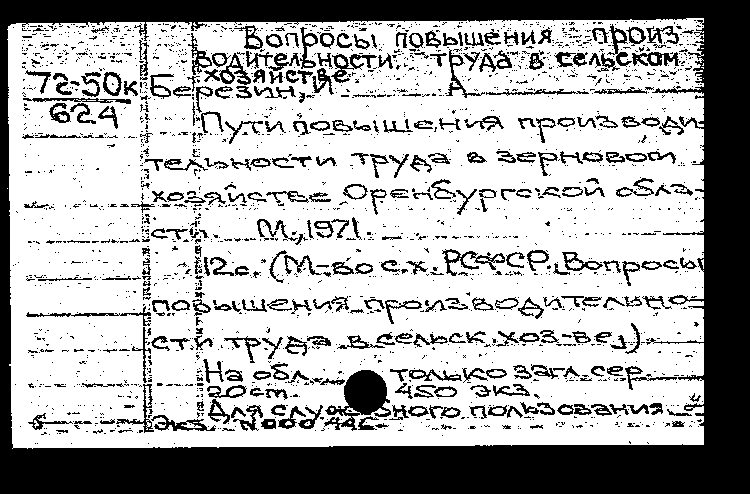 Вопросы повышения произ
водительности. труда в сельском
хозяйстве
72-50к
624
Березин, И. А
Пути повышения производи-
тельности труда в зерновом
хозяйстве Оренбургской обла-
сти. М., 1971.
12с. (М-во с.х. РСФСР. Вопросы
повышения производительно-
сти труда в сельск. хоз-ве)
На обл. только загл. сер.
20см. 450 экз.
Для служ ьного пользования
Экз. N000